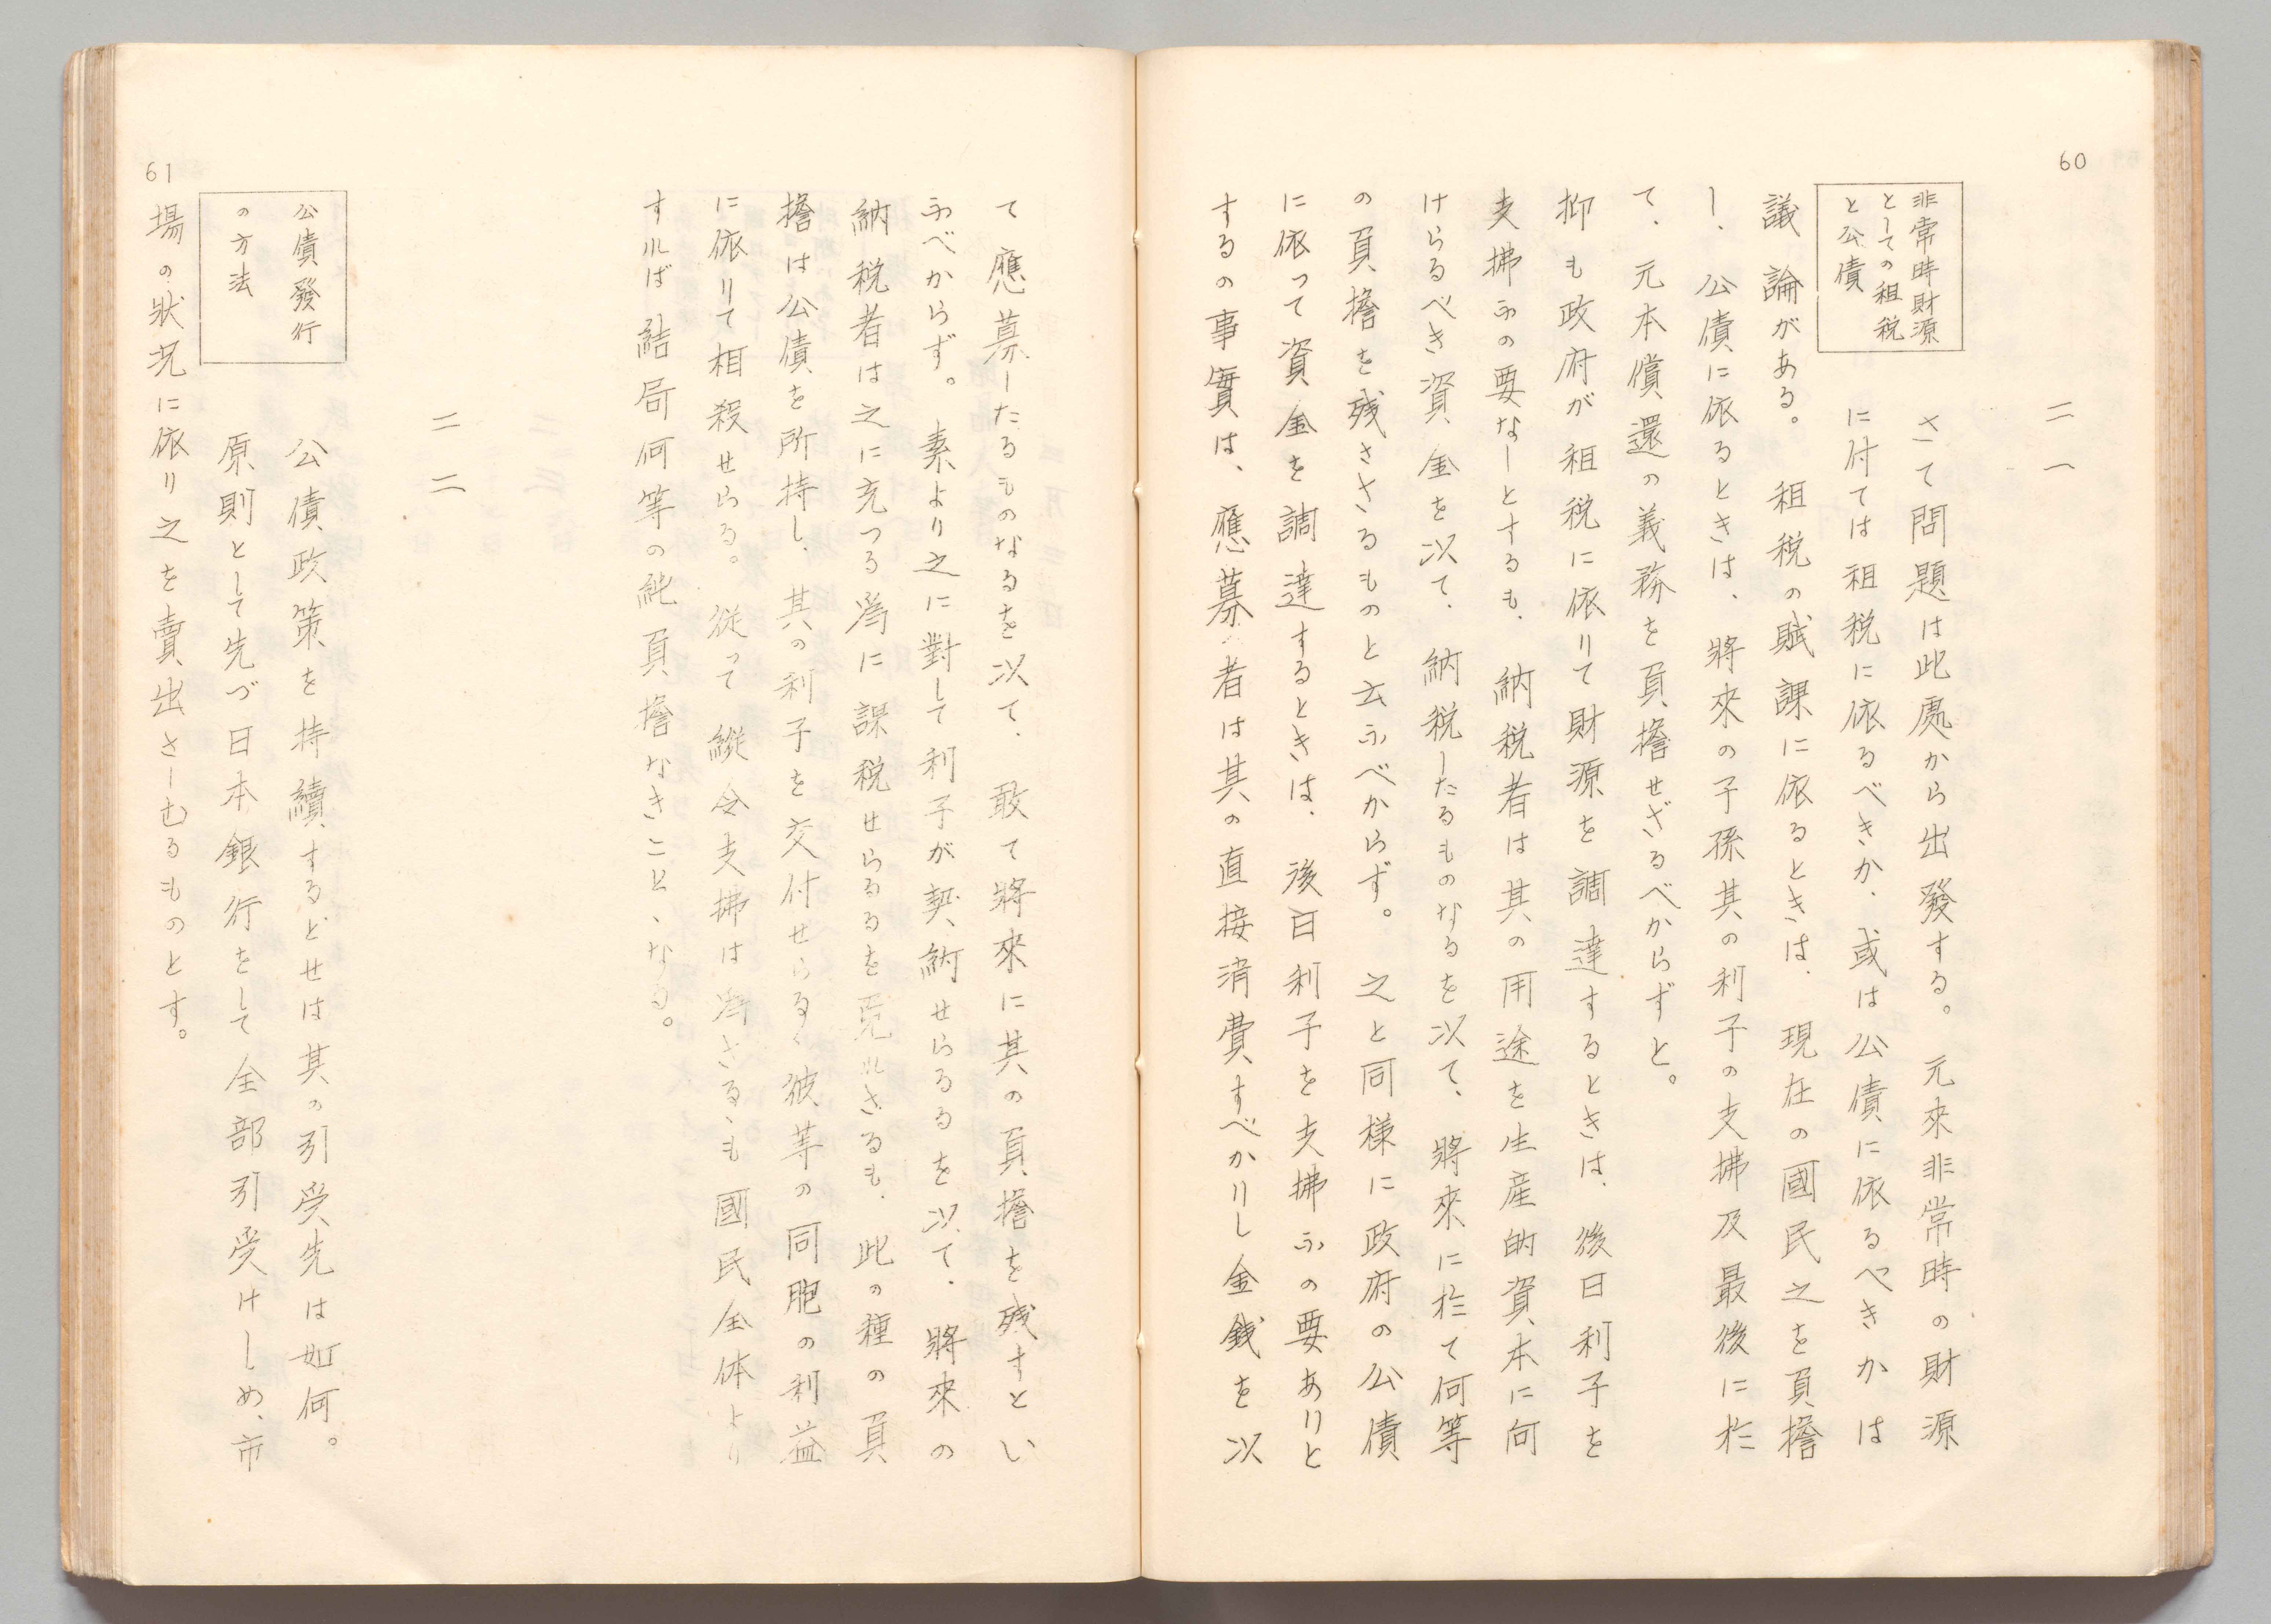 60
二一
非常時財源
としての租税
と公債
さて問題は此處から出發する。元來非常時の財源
に付ては租税に依るべきか、或は公債に依るべきかは
議論がある。租税の賦課に依るときは、現在の國民之を負擔
し、公債に依るときは、將來の子孫其の利子の支拂及最後に於
て、元本償還の義務を負擔せざるべからずと。
抑も政府が租税に依りて財源を調達するときは、後日利子を
支拂ふの要なしとするも、納税者は其の用途を生産的資本に向
けらるべき資金を以て、納税したるものなるを以て、將來に於て何等
の負擔を残さざるものと云ふべからず。之と同様に政府の公債
に依って資金を調達するときは、後日利子を支拂ふの要ありと
するの事實は、應募者は其の直接消費すべかりし金銭を以
て應募したるものなるを以て、敢て將來に其の負擔を残すとい
ふべからず。素より之に對して利子が契納せらるるを以て、將來の
納税者は之に充つる爲に課税せらるるを免れざるも、此の種の負
擔は公債を所持し、其の利子を交付せらるゝ彼等の同胞の利益
に依りて相殺せらる。從って縱令支拂は爲さるゝも國民全体より
すれば結局何等の純負擔なきことゝなる。
二二
公債發行
の方法
公債政策を持續するとせば其の引受先は如何。
原則として先づ日本銀行をして全部引受けしめ、市
場の狀況に依り之を賣出さしむるものとす。
61